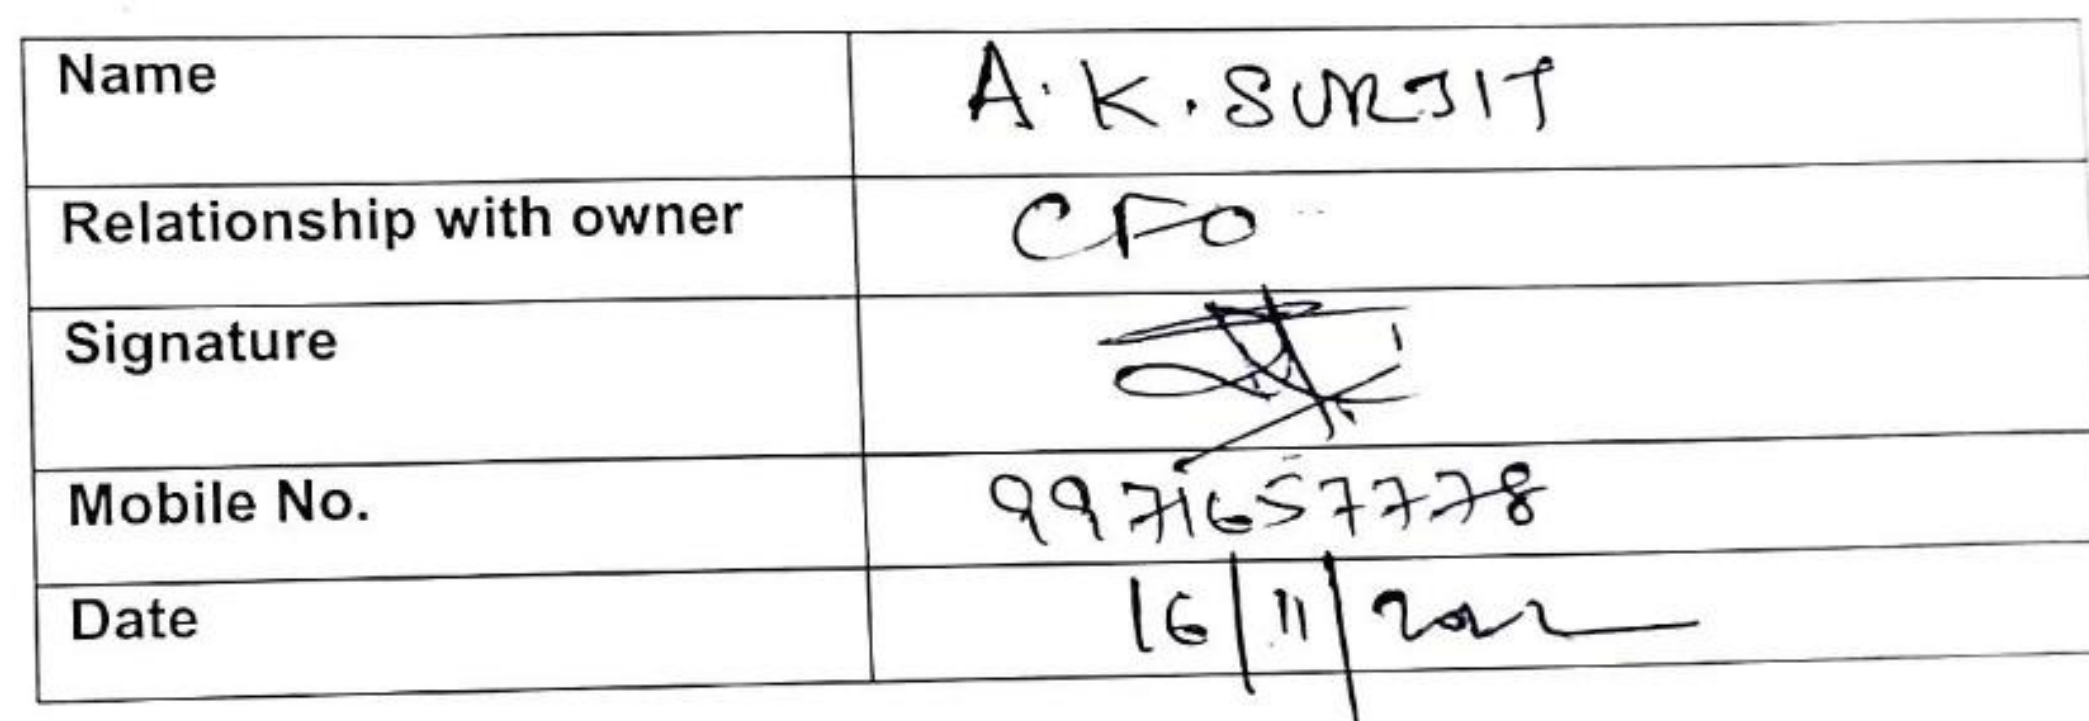 Name A.K.SURJIT
Relationship with owner CFO
Signature
Mobile No. 9971657778
Date 16/11/2022